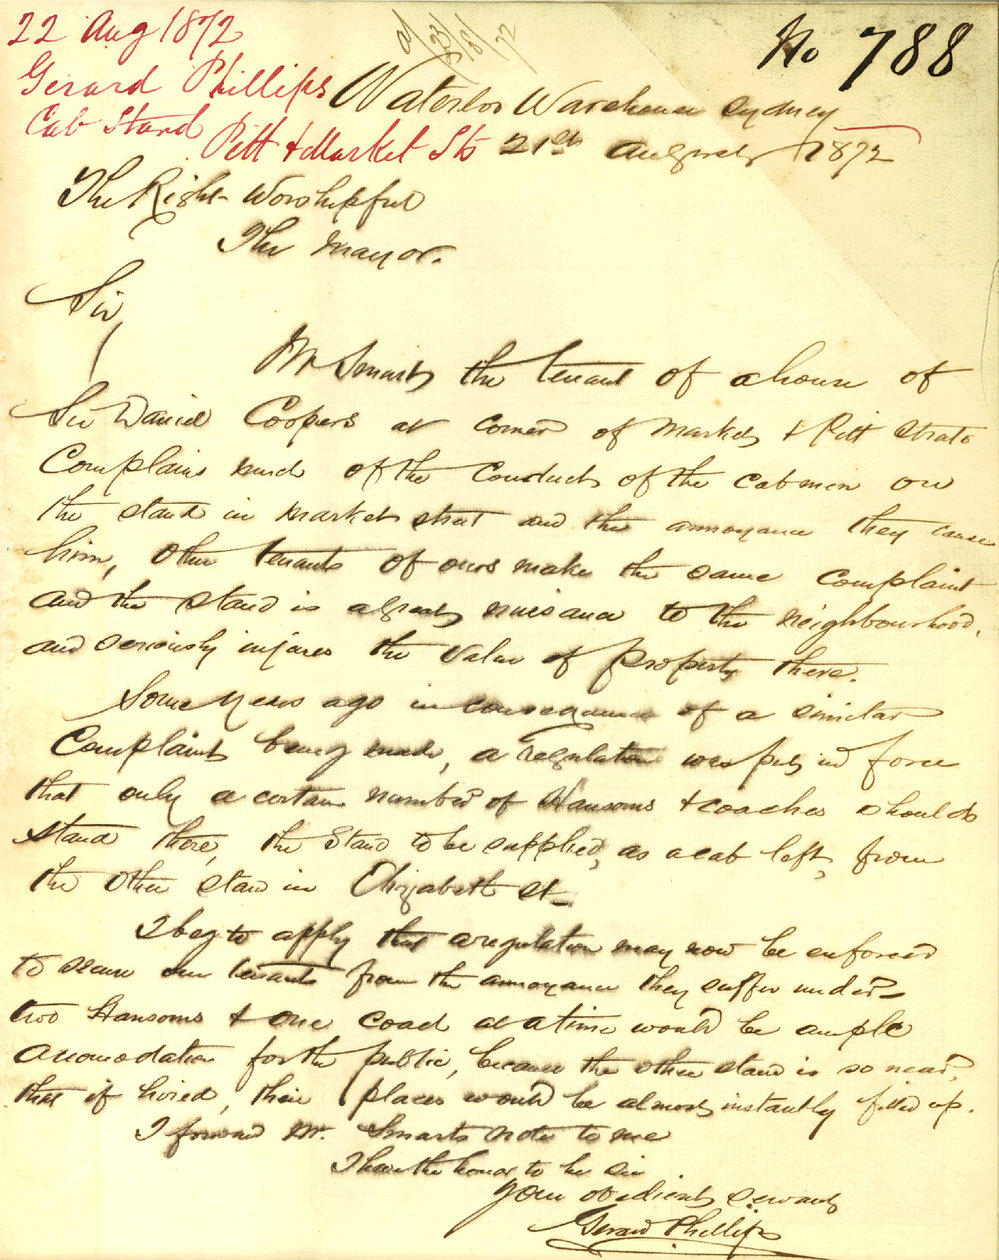 22 Aug 1872
Gerard Phillips
Cab Stand
Pitt & Market Sts
No 788
Waterloo Warehouse Sydney
21st August 1872
The Right Worshipful
The Mayor.
Sir,
Mr Smarts the tenant of a house of
Sir Daniel Coopers at corner of Market & Pitt Streets
Complains much of the Conduct of the cabmen on
the stand in Market Street and the annoyance they cause
him, other tenants of ours make the same complaint
and the stand is a great nuisance to the neighbourhood,
and seriously injures the value of property there.
Some years ago in consequence of a similar
Complaint being made, a regulation was put in force
that only a certain number of Hansoms & coaches should
stand there, the Stand to be supplied, as a cab left, from
the other stand in Elizabeth St_
I beg to apply that a regulation may now be enforced
to secure our tenants from the annoyance they suffer under_
two Hansoms & one coach at a time would be ample
accomodation for the public, because the other stand is so near,
that if hired, their places would be almost instantly filled up.
I forward Mr. Smarts note to me
I have the honor to be Sir
Your obedient servant
Gerard Phillips